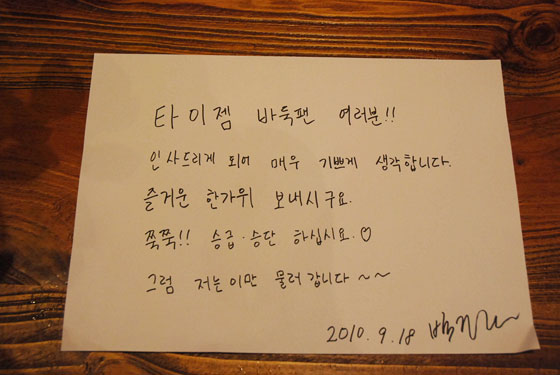 타이젬 바둑팬 여러분!!
인사드리게 되어 매우 기쁘게 생각합니다.
즐거운 한가위 보내시구요.
쭉쭉!! 승급·승단 하십시요.♡
그럼 저는 이만 물러 갑니다 ~~
2010. 9. 18